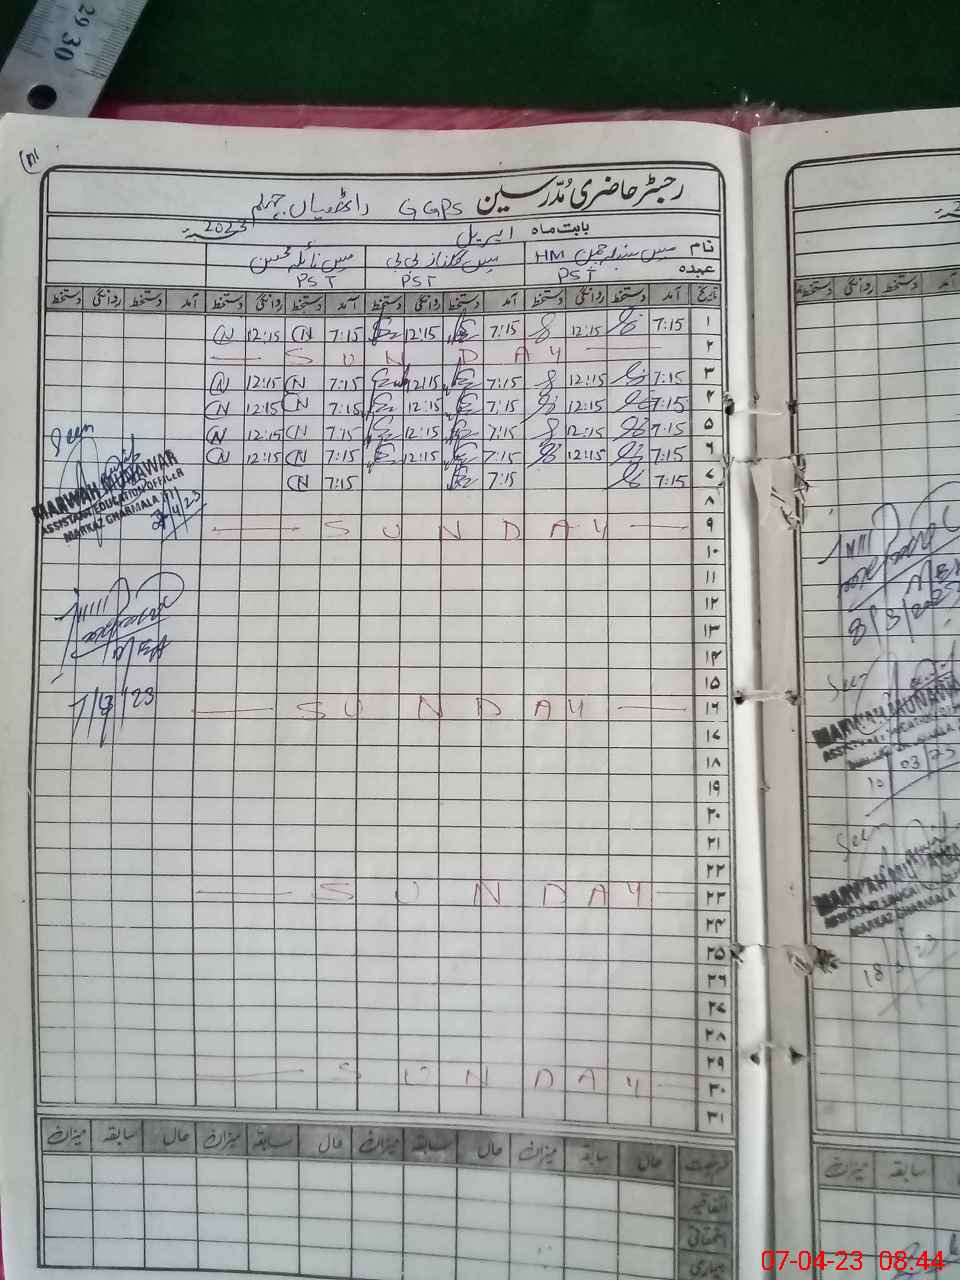 29 30
رجسٹر حاضری مُدرسین GGPS
بابت ماہ اپریل 2023
نام مس HM مس گلناز بی بی مس نائلہ
عہدہ PST PST PST
تاریخ آمد دستخط روانگی دستخط آمد دستخط روانگی دستخط آمد دستخط روانگی دستخط آمد دستخط روانگی دستخط
۱ 7:15 12:15 7:15 12:15 7:15 CN 12:15 CN
۲ SUNDAY
۳ 7:15 12:15 7:15 12:15 7:15 CN 12:15 CN
۴ 7:15 12:15 7:15 12:15 7:15 CN 12:15 CN
۵ 7:15 12:15 7:15 12:15 7:15 CN 12:15 CN
۶ 7:15 12:15 7:15 12:15 7:15 CN 12:15 CN
۷ 7:15 7:15 7:15 CN
۸
۹ SUNDAY
۱۰
۱۱
۱۲
۱۳
۱۴
۱۵
۱۶ SUNDAY
۱۷
۱۸
۱۹
۲۰
۲۱
۲۲
۲۳ SUNDAY
۲۴
۲۵
۲۶
۲۷
۲۸
۲۹
۳۰ SUNDAY
۳۱
Seen
MARWAH MUNAWAR
ASSISTANT EDUCATION OFFICER
MARKAZ GHARMALA
MEA
7/4/23
رخصت حال سابقہ میزان حال سابقہ میزان حال سابقہ میزان حال سابقہ میزان
اتفاقیہ
استحقاقی
بیماری
آمد دستخط روانگی دستخط
MEA
8/3/2023
Seen
MARWAH MUNAWAR
10 03 23
Seen
MARKAZ GHARMALA
18 3 23
سابقہ میزان
07-04-23 08:44